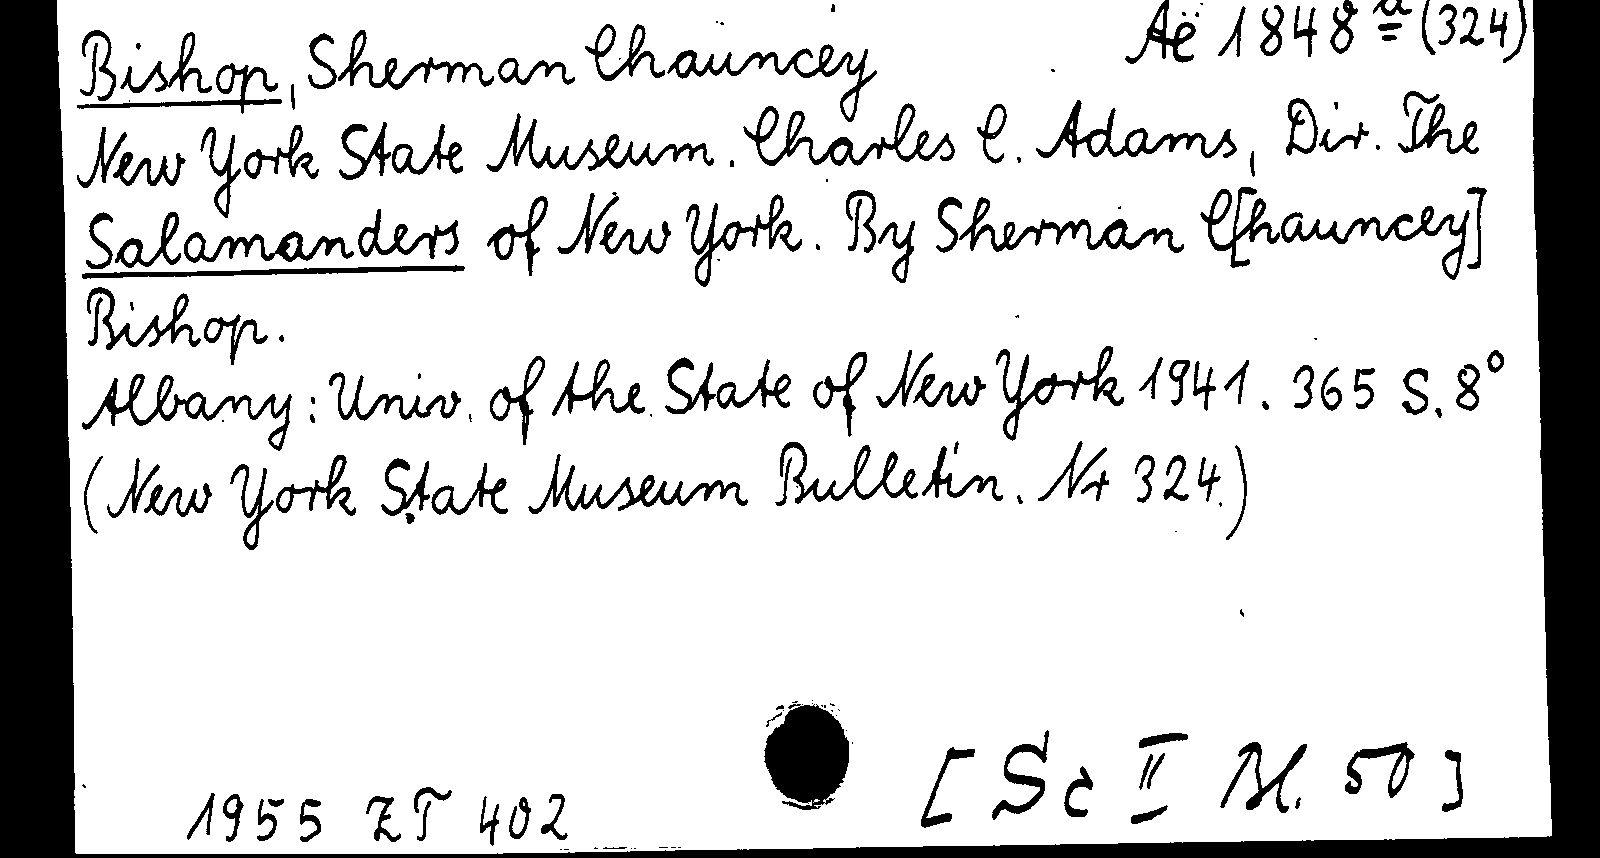 Bishop, Sherman Chauncey Aë 1848 a (324)
New York State Museum. Charles C. Adams, Dir. The
Salamanders of New York. By Sherman C[hauncey]
Bishop.
Albany: Univ. of the State of New York 1941. 365 S. 8°
(New York State Museum Bulletin. Nr 324.)
[Sc II Bl. 50]
1955 ZT 402